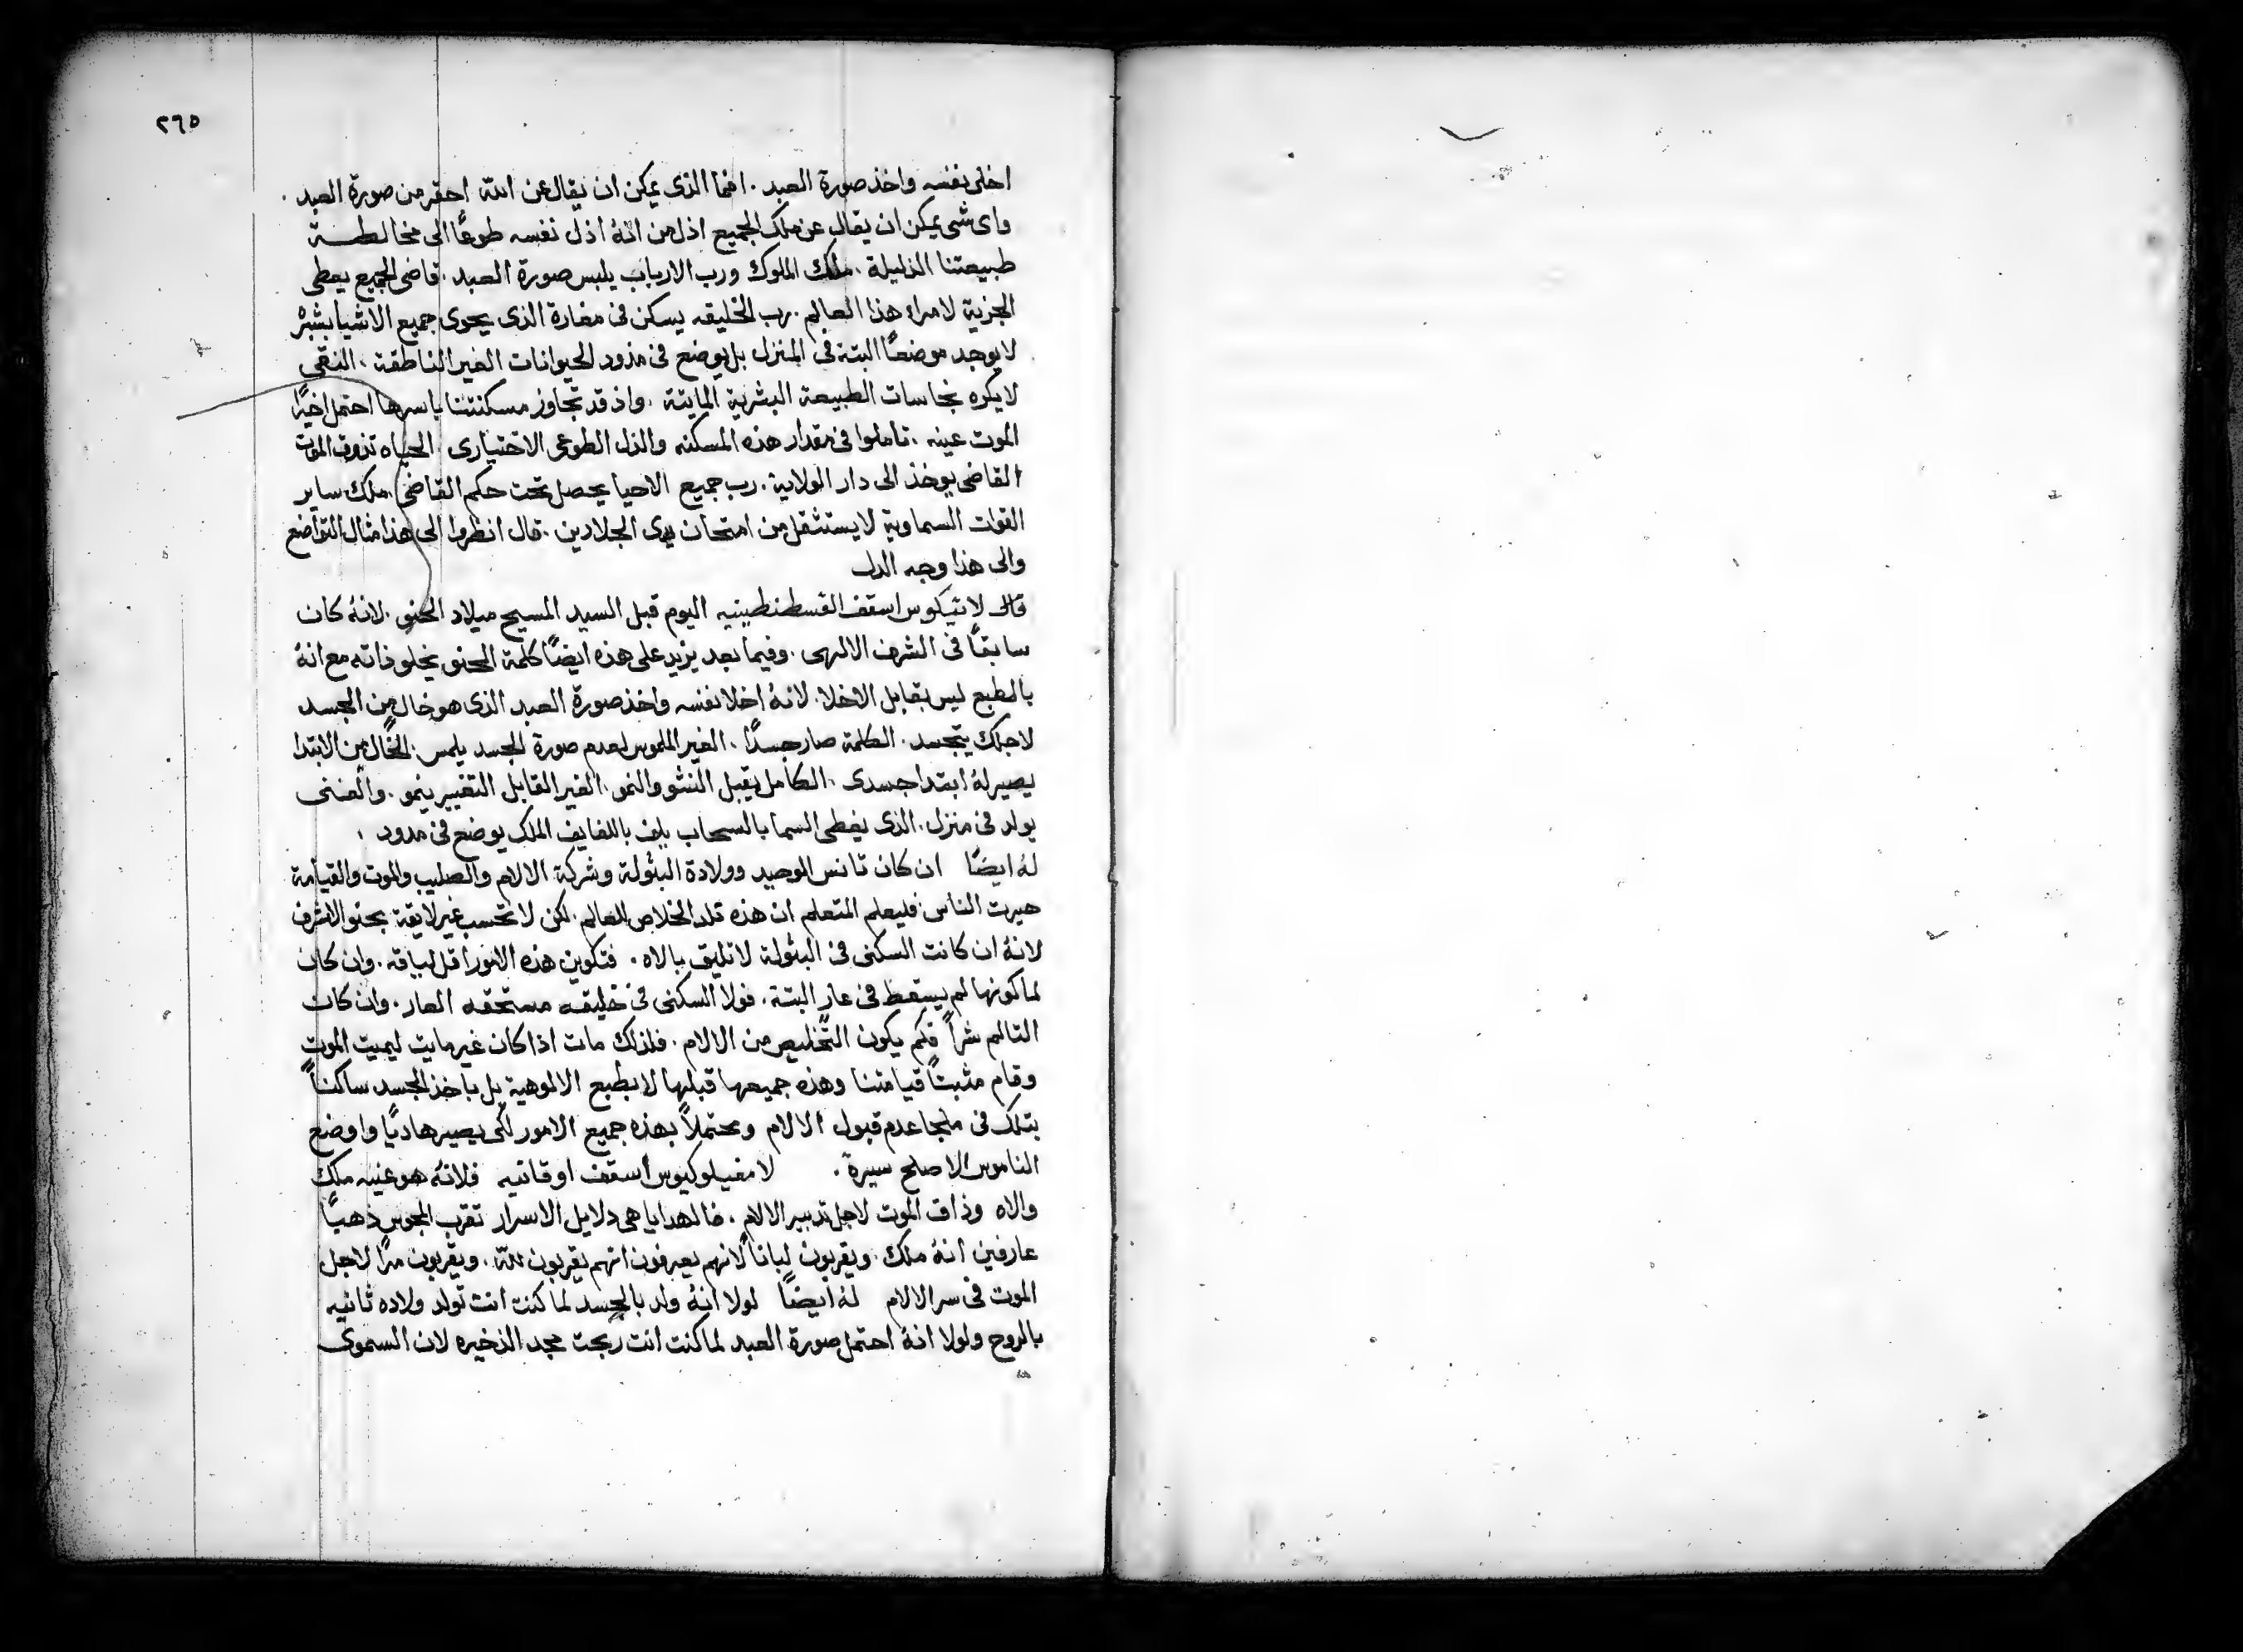 ٢٦٥
اخلى نفسه واخذ صورة العبد . افما الذى يمكن ان يقال عن الله احقر من صورة العبد .
واى شى يمكن ان يقال عن ملك الجميع اذل من انهُ اذل نفسه طوعًا الى مخالطـــة
طبيعتنا الذليلة . ملك الملوك ورب الارباب يلبس صورة العبد . قاضى الجميع يعطى
الجزية لامراء هذا العالم . رب الخليقه يسكن فى مغارة الذى يحوى جميع الاشيا بشبرْ
لا يوجد موضعًا البتة فى المنزل بل يوضع فى مذود الحيوانات الغير الناطقة . النقى
لا يكره نجاسات الطبيعة البشرية المايتة . واذ قد تجاوز مسكنتنا باسرها احتمل اخيرًا
الموت عينه . تاملوا فى مقدار هذه المسكنه والذل الطوعى الاختيارى . الحياه تذوق الموت
القاضى يوخذ الى دار الولاية . رب جميع الاحيا يحصل تحت حكم القاضى . ملك ساير
القوات السماوية لا يستثقل من امتحان يدى الجلادين . قال انظروا الى هذا مثال التواضع
والى هذا وجه الدل
قال لاتيكوس اسقف القسطنطينيه اليوم قبل السيد المسيح ميلاد الحنو . لانهُ كان
سابقًا فى الشرف الالهى . وفيما بعد يزيد على هذه ايضًا كلمة الحنو يخلو ذاته مع انهُ
بالطبع ليس بقابل الاخلا . لانهُ اخلا نفسه واخذ صورة العبد الذى هو خال من الجسد
لاجلك يتجسد . الكلمة صار جسدًا . الغير الملموس لعدم صورة الجسد يلمس . الخال من الابتدا
يصير لهُ ابتدا جسدى . الكامل يقبل النشو والنمو . الغير القابل التغيير ينمو . والغنى
يولد فى منزل . الذى يغطى السما بالسحاب يلف باللفايف الملك يوضع فى مدود .
لهُ ايضًا ان كان تانس الوحيد وولادة البتولة وشركة الالام والصليب والموت والقيامة
حيرت الناس فليعلم المتعلم ان هذه قلد الخلاص للعالم . لكن لا تحسب غير لايقة بحنو الاشرف
لانهُ ان كانت السكنى فى البتولة لا تليق بالاه . فتكوين هذه الامور اقل لباقه . وان كان
لما كونها لم يسقط فى عار البتة . فولا السكنى فى خليقه مستحقه العار . وان كان
التالم شراً فكم يكون التخليص من الالام . فلذلك مات اذا كان غير مايت ليميت الموت
وقام مثبتًا قيامتنا وهذه جميعها قبلها لا بطبع الالوهية بل باخذ الجسد ساكنًا
بتلك فى ملجا عدم قبول الالام ومحتملاً بهذه جميع الامور لكى يصير هاديًا واوضع
الناموس الاصلح سيرة . لامفيلوكيوس اسقف اوقانيه فلانهُ هو عينه ملك
والاه وذاق الموت لاجل تدبير الالام . فالهدايا هى دلايل الاسرار تقرب المجوس ذهبًا
عارفين انهُ ملك . ويقربون لبانًا لانهم يعرفون انهم يقربون لله . ويقربون مرًا لاجل
الموت فى سر الالام لهُ ايضًا لولا انهُ ولد بالجسد لما كنت انت تولد ولاده ثانيه
بالروح ولولا انهُ احتمل صورة العبد لما كنت انت ربحت مجد الذخيره لان السموى